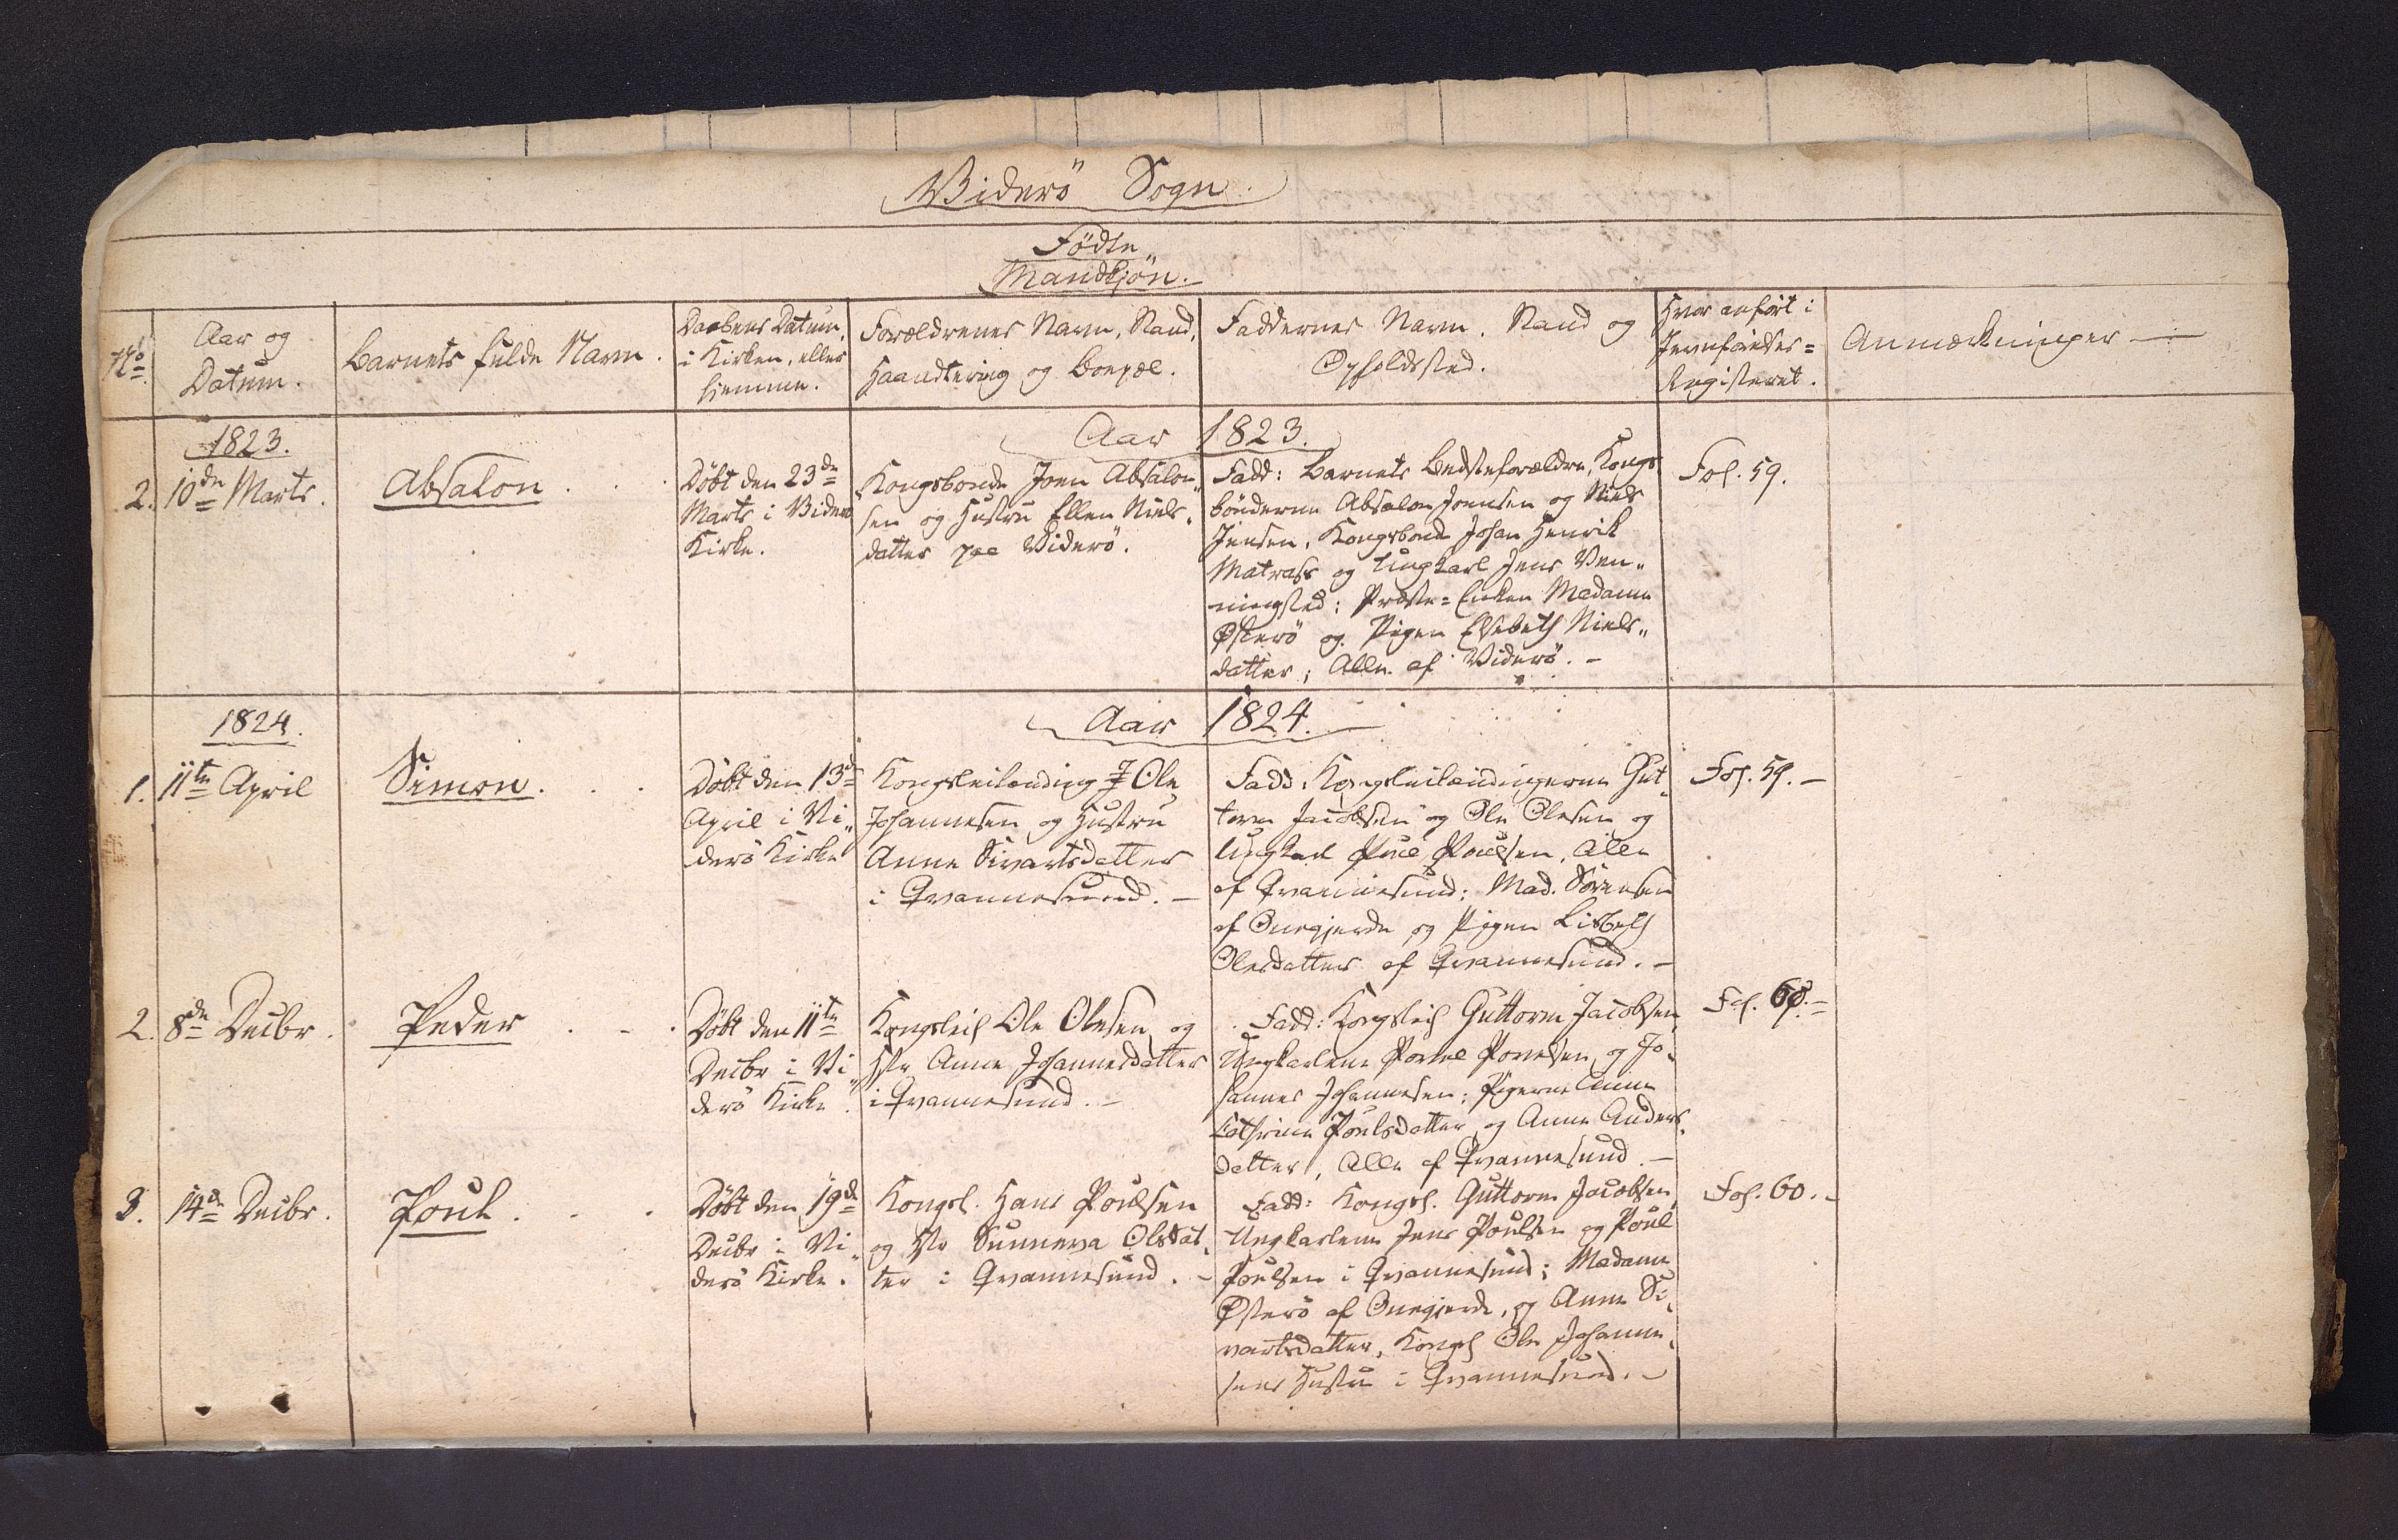 Viderö Sogn.
Födte
Mandkjön.
No
Aar og
Datum.
Barnets fulde Navn.
Daabens Datum,
i Kirken, eller
hjemme.
Forældrenes Navn, Stand,
Haandtering og Boepæl.
Faddernes Navn, Stand og
Opholdssted.
Hvor anført i
Jevnførelses=
Registeret.
Anmærkninger
1823.
Aar 1823.
2.
10de Marts.
Absalon
Döbt den 23de
Marts i Viderö
Kirke.
Kongsbonde Joen Absalon„
sen og Hustru Ellen Niels„
datter paa Viderö.
Fadd: Barnets Bedsteforældre, Kongs
bönderne Absalon Joensen og Niels
Jensen, Kongsbonde Johan Henrik
Matrass og Ungkarl Jens Ven„
ningsted; Præste=Enken Madame
Østerö og Pigen Elsebeth Niels„
datter; Alle af Viderö.
Fol. 59.
1824.
Aar 1824.
1.
11te April
Simon.
Döbt den 13de
April i Vi„
derö Kirke
Kongsleilænding Ole
Johannesen og Hustru
Anne Sivartsdatter
i Qvannesund.
Fadd: Kongsleilændingerne Gut„
torm Jacobsen og Ole Olesen og
Ungkarl Poul Poulsen, Alle
af Qvannesund; Mad. Sörensen
af Onegjerde og Pigen Lisbeth
Olesdatter af Qvannesund.
Fol. 59.
2.
8de Decbr.
Peder
Döbt den 11te
Decbr i Vi„
derö Kirke.
Kongsleil Ole Olesen og
Hstr Anne Johannesdatter
i Qvannesund.
Fadd: Kongsleil Guttorm Jacobsen,
Ungkarlene Poul Poulsen og Jo„
hannes Johannesen; Pigerne Anne
Cathrine Poulsdatter og Anne Anders„
datter, Alle af Qvannesund.
Fol. 60.
3.
14de Decbr.
Poul.
Döbt den 19de
Decbr i Vi„
derö Kirke.
Kongsl. Hans Poulsen
og Hstr Sunneva Olsdat„
ter i Qvannesund.
Fadd: Kongsl. Guttorm Jacobsen,
Ungkarlene Jens Poulsen og Poul
Poulsen i Qvannesund; Madame
Østerö af Onegjerde, og Anne Si„
vartsdatter, Kongsl Ole Johanne„
sens Hustru i Qvannesund.
Fol. 60.